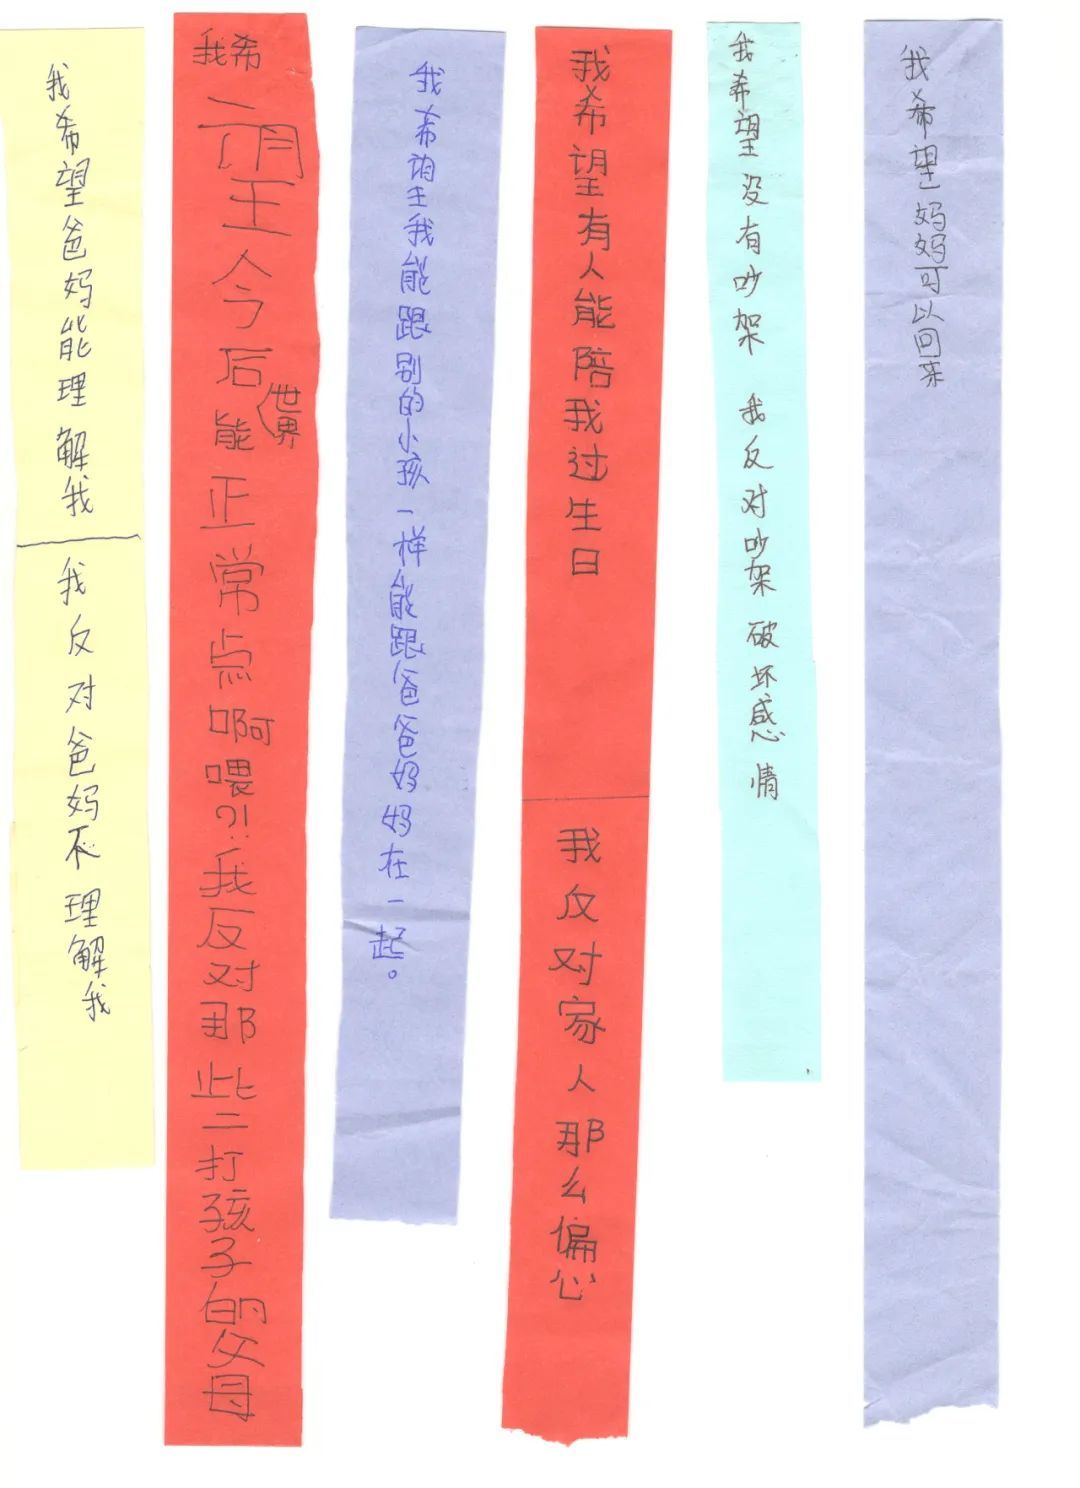 我希望爸妈能理解我
我反对爸妈不理解我
我希望今后世界能正常点啊喂?!我反对那些打孩子的父母
我希望我能跟别的小孩一样能跟爸爸妈妈在一起。
我希望有人能陪我过生日
我反对家人那么偏心
我希望没有吵架 我反对吵架破坏感情
我希望妈妈可以回来